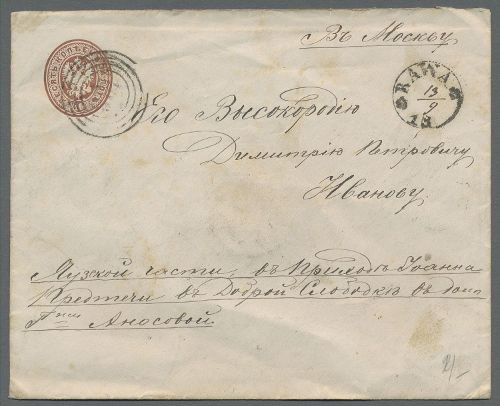 Въ Москву
RAWA
13/9
18
Его Высокородію
Димитрію Петровичу
Иванову.
Музской части, въ Приходѣ Іоанна
Предтечи въ Доброй Слободкѣ въ домѣ
Г-жи Аносовой.